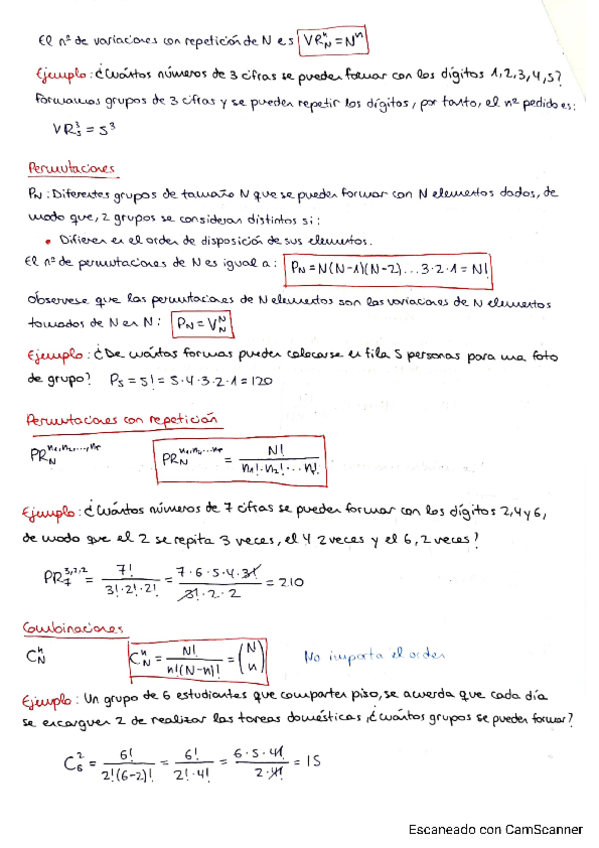 El nº de variaciones con repetición de N es VR_N^n = N^n
Ejemplo: ¿Cuántos números de 3 cifras se pueden formar con los dígitos 1,2,3,4,5?
Formamos grupos de 3 cifras y se pueden repetir los dígitos, por tanto, el nº pedido es:
VR_5^3 = 5^3
Permutaciones
P_N: Diferentes grupos de tamaño N que se pueden formar con N elementos dados, de
modo que, 2 grupos se consideran distintos si:
• Difieren en el orden de disposición de sus elementos.
El nº de permutaciones de N es igual a: P_N = N(N-1)(N-2)...3·2·1 = N!
Observese que las permutaciones de N elementos son las variaciones de N elementos
tomados de N en N: P_N = V_N^N
Ejemplo: ¿De cuántas formas pueden colocarse en fila 5 personas para una foto
de grupo? P_5 = 5! = 5·4·3·2·1 = 120
Permutaciones con repetición
PR_N^{n1,n2,...,nr} PR_N^{n1,n2...nr} = N! / (n1!·n2!·...nr!)
Ejemplo: ¿Cuántos números de 7 cifras se pueden formar con los dígitos 2,4 y 6,
de modo que el 2 se repita 3 veces, el 4 2 veces y el 6, 2 veces?
PR_7^{3,2,2} = 7! / (3!·2!·2!) = (7·6·5·4·3!) / (3!·2·2) = 210
Combinaciones
C_N^n C_N^n = N! / (n!(N-n)!) = (N n) No importa el orden
Ejemplo: Un grupo de 6 estudiantes que comparten piso, se acuerda que cada día
se encarguen 2 de realizar las tareas domésticas, ¿cuántos grupos se pueden formar?
C_6^2 = 6! / (2!(6-2)!) = 6! / (2!·4!) = (6·5·4!) / (2·4!) = 15
Escaneado con CamScanner